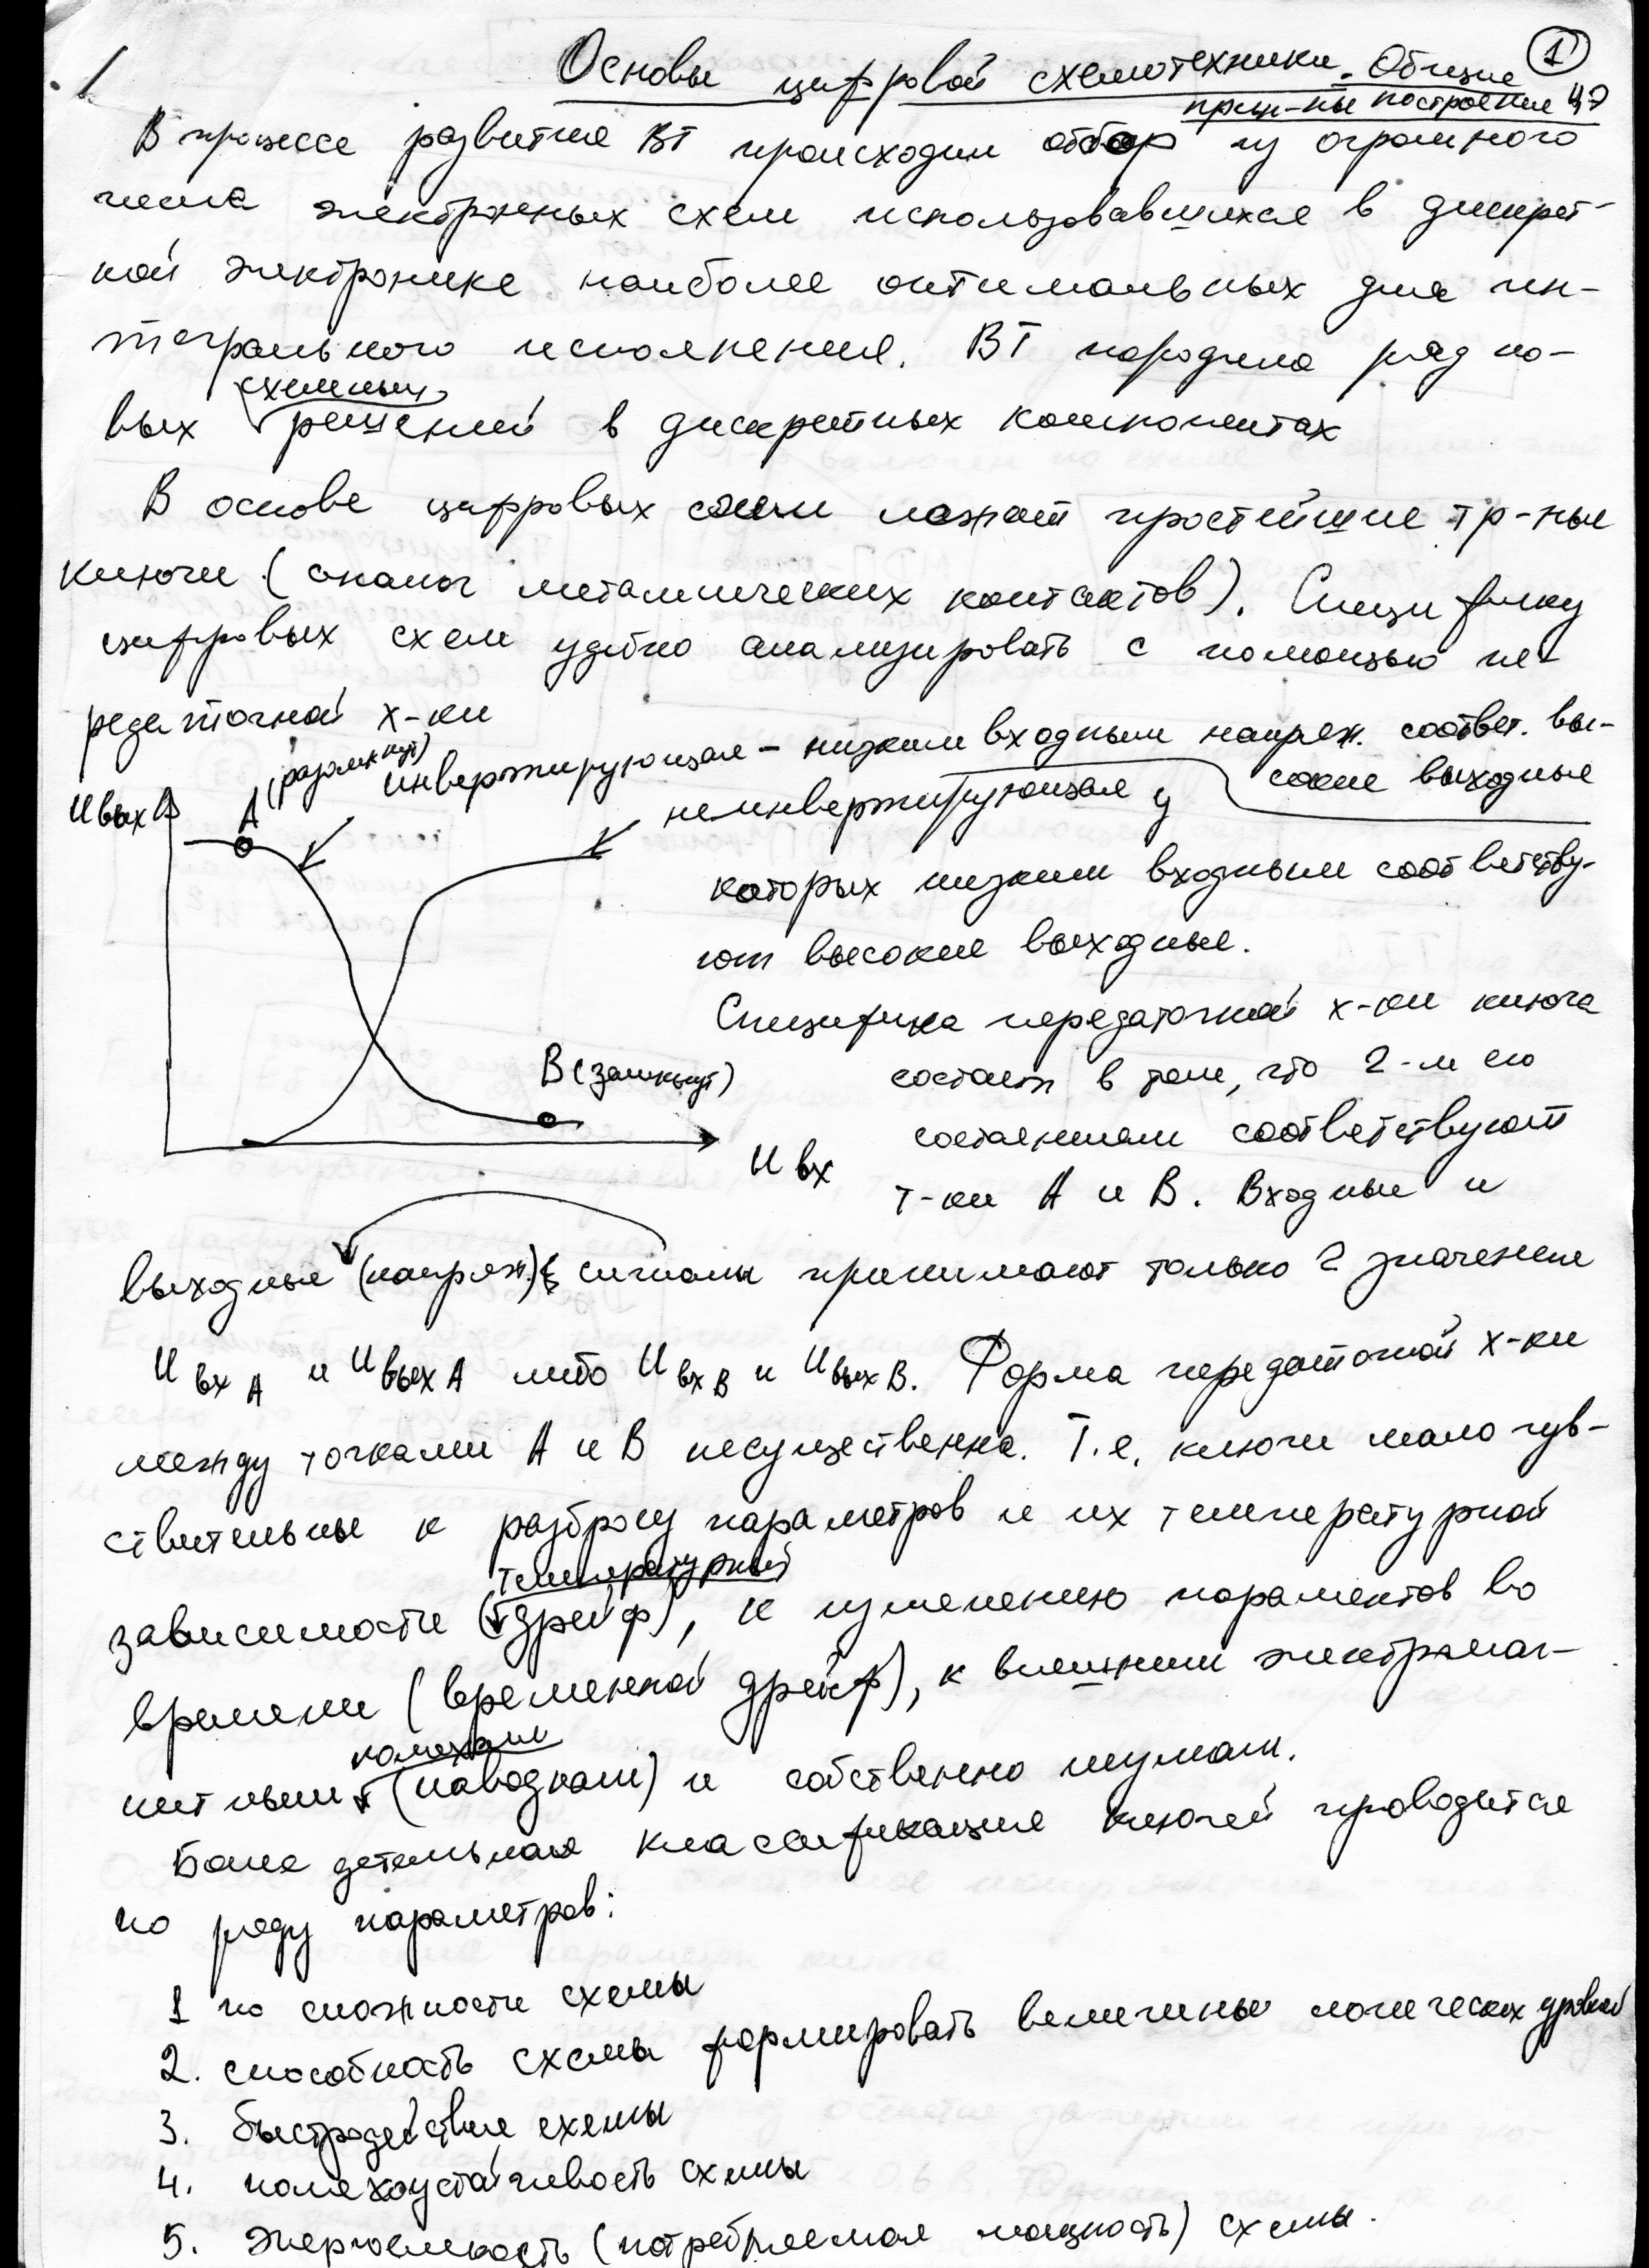 1
Основы цифровой схемотехники. Общие
прин-пы построения ЦЭ
В процессе развития ВТ происходил отбор из огромного
числа электронных схем использовавшихся в дискрет-
ной электронике наиболее оптимальных для ин-
тегрального исполнения. ВТ породила ряд но-
схемных
вых решений в дискретных компонентах
В основе цифровых схем лежат простейшие тр-ные
ключи (аналог металлических контактов). Специфику
цифровых схем удобно анализировать с помощью пе-
редаточной х-ки
инвертирующая - низким входным напряж. соответ. вы-
сокие выходные
неинвертирующая у
которых низким входным соответству-
ют высокие выходные.
Uвых
А (разомкнут)
В (замкнут)
Uвх
Специфика передаточной х-ки ключа
состоит в том, что 2-м его
состояниям соответствуют
т-ки А и В. Входные и
выходные (напряж.) сигналы принимают только 2 значения
Uвх А и Uвых А либо Uвх В и Uвых В. Форма передаточной х-ки
между точками А и В несущественна. Т.е. ключи мало чув-
ствительны к разбросу параметров и их температурной
температурный
зависимости (дрейф), к изменению параментов во
времени (временной дрейф), к внешним электромаг-
помехам
нитным (наводкам) и собственно шумам.
Более детальная классификация ключей проводится
по ряду параметров:
1 по сложности схемы
2. способность схемы формировать величины логических уровней
3. быстродействие схемы
4. помехоустойчивость схемы
5. Энергоемкость (потребляемая мощность) схемы.